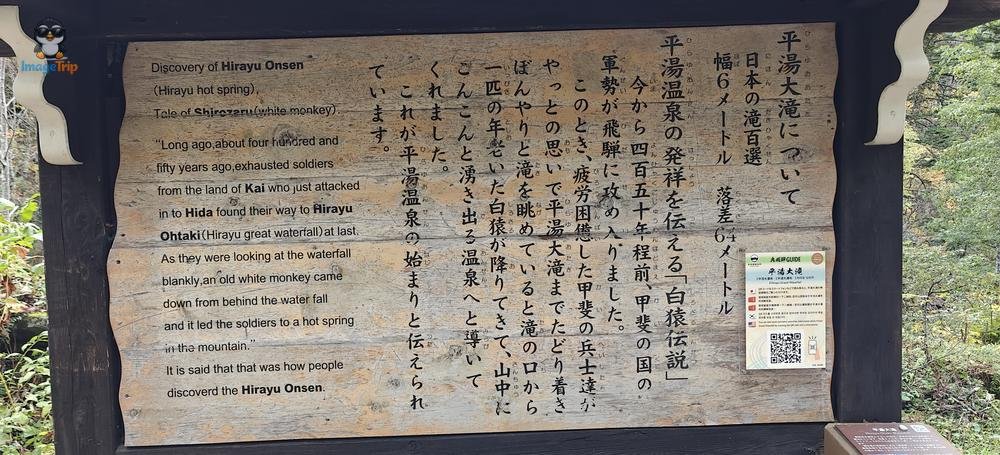 ImageTrip
平湯大滝について
日本の滝百選
幅6メートル 落差64メートル
平湯温泉の発祥を伝える「白猿伝説」
今から四百五十年程前、甲斐の国の
軍勢が飛騨に攻め入りました。
このとき、疲労困憊した甲斐の兵士達が
やっとの思いで平湯大滝までたどり着き
ぼんやりと滝を眺めていると滝の口から
一匹の年老いた白猿が降りてきて、山中に
こんこんと湧き出る温泉へと導いて
くれました。
これが平湯温泉の始まりと伝えられ
ています。
Discovery of Hirayu Onsen
(Hirayu hot spring),
Tale of Shirozaru(white monkey).
"Long ago,about four hundred and
fifty years ago,exhausted soldiers
from the land of Kai who just attacked
in to Hida found their way to Hirayu
Ohtaki(Hirayu great waterfall)at last.
As they were looking at the waterfall
blankly,an old white monkey came
down from behind the water fall
and it led the soldiers to a hot spring
in the mountain."
It is said that that was how people
discoverd the Hirayu Onsen.
GUIDE
平湯大滝